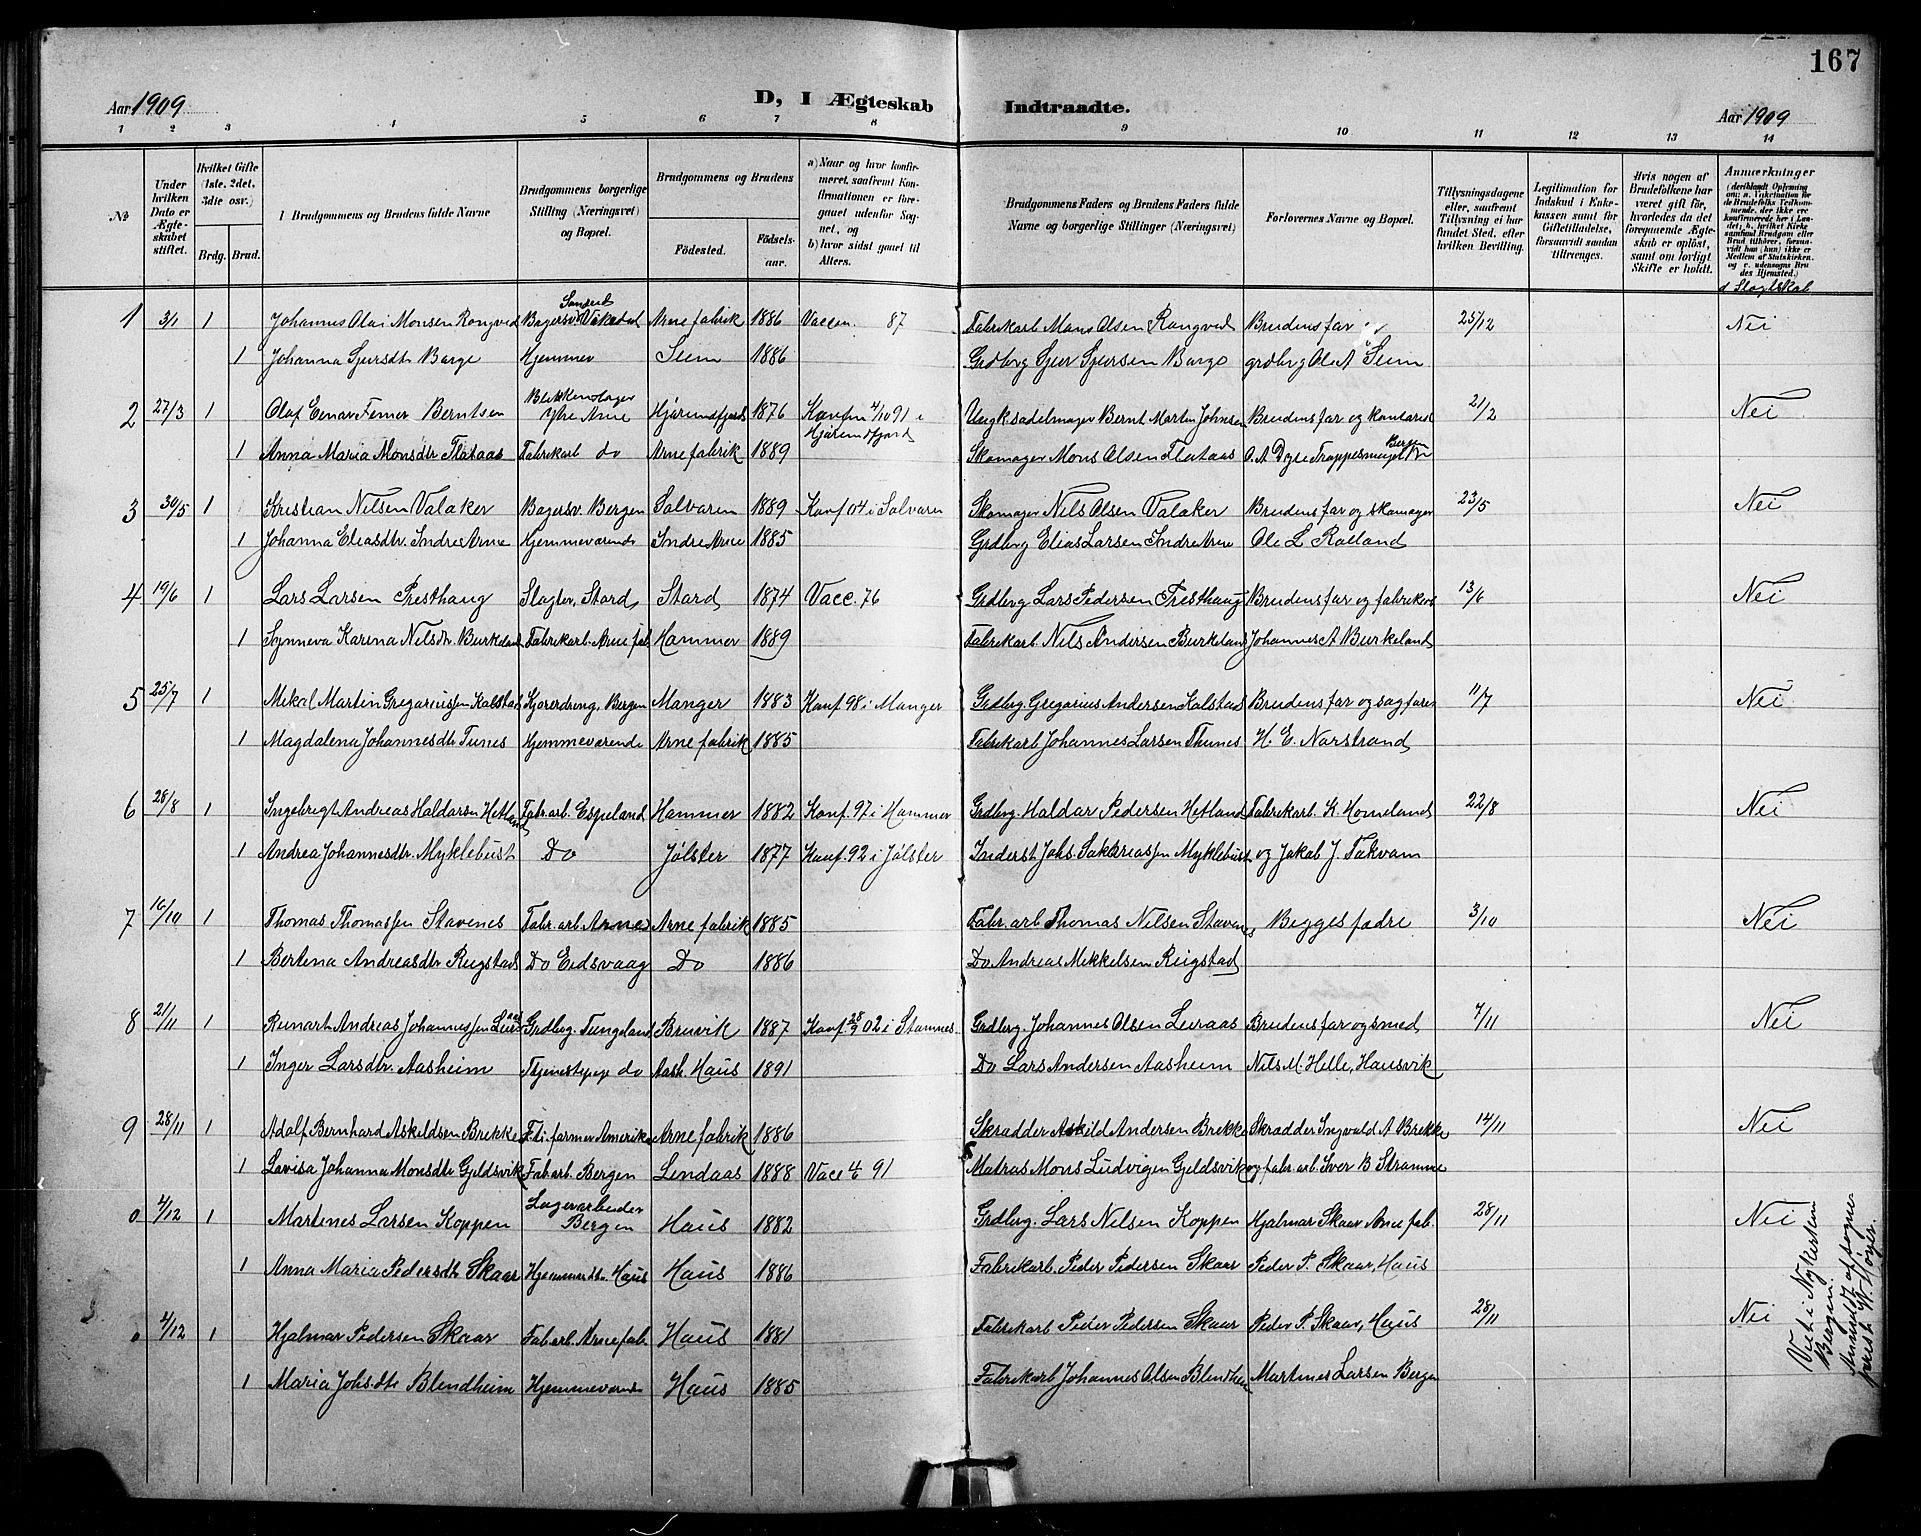 167
Aar 1909
D, I Ægteskab Indtraadte.
Aar 1909
1 2 3 4 5 6 7 8 9 10 11 12 13 14
№
Under hvilken Dato er Ægteskabet stiftet.
Hvilket Gifte (1ste, 2det, 3die osv.)
Brdg. Brud.
Brudgommens og Brudens fulde Navne
Brudgommens borgerlige Stilling (Næringsvei) og Bopæl.
Brudgommens og Brudens
Fødested. Fødselsaar.
a) Naar og hvor konfirmeret, saafremt Konfirmationen er foregaaet udenfor Sognet, og
b) hvor sidst gaaet til Alters.
Brudgommens Faders og Brudens Faders fulde Navne og borgerlige Stillinger (Næringsvei)
Forlovernes Navne og Bopæl.
Tillysningsdagene eller, saafremt Tillysning ei har fundet Sted, efter hvilken Bevilling.
Legitimation for Indskud i Enkekassen samt for Giftetilladelse, forsaavidt saadan tiltrænges.
Hvis nogen af Brudefolkene har været gift før, hvorledes da det foregaaende Ægteskab er opløst, samt om lovligt Skifte er holdt.
Anmærkninger
(deriblandt Oplysning om: a. Vaksination for de Brudefolks Vedkommende, der ikke ere konfirmerede her i Landet; b. hvilket Kirkesamfund Brudgom eller Brud tilhører, forsaavidt han (hun) ikke er Medlem af Statskirken, og c. udensogns Brudes Hjemsted.)
d Slagtskab
1 3/1 1 Johannes Olai Monsen Rongved Bagersv. Vaksdal Arne fabrik 1886 Vaccen. 87 Fabrikarb Mons Olsen Rongved Brudens far og 25/12 Nei
1 Johanna Sjursdtr Barge Hjemmev Seim 1886 Grdbrg Sjur Sjursen Barge grdbrg Ole A Seim
2 27/3 1 Olaf Einar Femer Berntsen Blikkenslager Ytre Arne Hjørundfjord 1876 Konfm 4/10 91 i Hjørundfjord Uargk.sadelmager Bernt Martin Johnsen Brudens far og kontorist 21/2 Nei
1 Anna Maria Monsdtr Flataas Fabrikarb do Arne fabrik 1889 Skomager Mons Olsen Flataas O. A Dyle Trappesmuget Bergen
3 30/5 1 Kristian Nilsen Valaker Bagersv. Bergen Solvorn 1889 Konf 04 i Solvorn Skomager Nils Olsen Valaker Brudens far og skomager 23/5 Nei
1 Johanna Eliasdtr. Indre Arne Hjemmeværende Indre Arne 1885 Grdbrg Elias Larsen Indre Arne Ole L Rolland
4 19/6 1 Lars Larsen Presthaug Slagter, Stord Stord 1874 Vacc. 76 Grdbrg Lars Pedersen Presthaug Brudens far og fabrikarb 13/6 Nei
1 Synneva Karina Nilsdtr. Burkeland Fabrikarb. Arne fab Hammer 1889 Fabrikarb. Nils Andersen Burkeland Johannes A Burkeland
5 25/7 1 Mikal Martin Gregoriussen Kolstad Kjøredreng, Bergen Manger 1883 Konf 98 i Manger Grdbrg. Gregorius Andersen Kolstad Brudens far og sagfører 11/7 Nei
1 Magdalena Johannesdtr Tunes Hjemmeværende Arne fabrik 1885 Fabrikarb Johannes Larsen Thunes H. E. Norstrand
6 28/8 1 Ingebrigt Andreas Haldorsen Hetland Fabr.arb. Espeland Hammer 1882 Konf. 97 i Hammer Grdbrg. Haldor Pedersen Hetland Fabrikarb. K. Homeland 22/8 Nei
1 Andrea Johannesdtr. Myklebust Do Jølster 1877 Konf. 92 i Jølster Inderst Johs. Sakkriassen Myklebust og Jakob J. Takvam
7 16/10 1 Thomas Thomassen Stavenes Fabr. arb. Arne Arne fabrik 1885 Fabr. arb Thomas Nilsen Stavenes Begges fædre 3/10 Nei
1 Bertina Andreasdtr Reigstad Do Eidsvaag Do 1886 Do Andreas Mikkelsen Reigstad
8 21/11 1 Reinart Andreas Johannessen Leiraas Grdbrg. Tungeland Bruvik 1887 Konf. 28/9 02 i Stamnes Grdbrg. Johannes Olsen Leiraas Brudens far og smed 7/11 Nei
1 Inger Larsdtr. Aasheim Tjenestepige do Aash. Haus 1891 Do Lars Andersen Aasheim Nils M. Helle, Hausvik
9 28/11 1 Adolf Bernhard Askildsen Brekke F.t. farmer Amerika Arne fabrik 1886 Skrædder Askild Andersen Brekke Skrædder Ingvald A Brekke 14/11 Nei
1 Lovisa Johanna Monsdtr Gjeldsvik Fab arb. Bergen Lindaas 1888 Vacc 4/6 91 Matros Mons Ludvigen Gjeldsvik og fabr. arb. Iver B Stramme
0 4/12 1 Martines Larsen Koppen Lagerarbeider Bergen Haus 1882 Grdbrg. Lars Nilsen Koppen Hjalmar Skaar Arne fab. 28/11 Nei
1 Anna Maria Pedersdtr Skaar Hjemmedtr. Haus Haus 1886 Fabrikarb. Peder Pedersen Skaar Peder P. Skaar, Haus
0 4/12 1 Hjalmar Pedersen Skaar Fab arb. Arne fab. Haus 1881 Fabrikarb Peder Pedersen Skaar Peder P. Skaar, Haus 28/11 Nei
1 Maria Johs.dtr Blendheim Hjemmeværende Haus 1885 Fabrikarb. Johannes Olsen Blendheim Martines Larsen Bergen
Viet i Nykirken Bergen. Anmeldt af sogneprest W. Høyer.